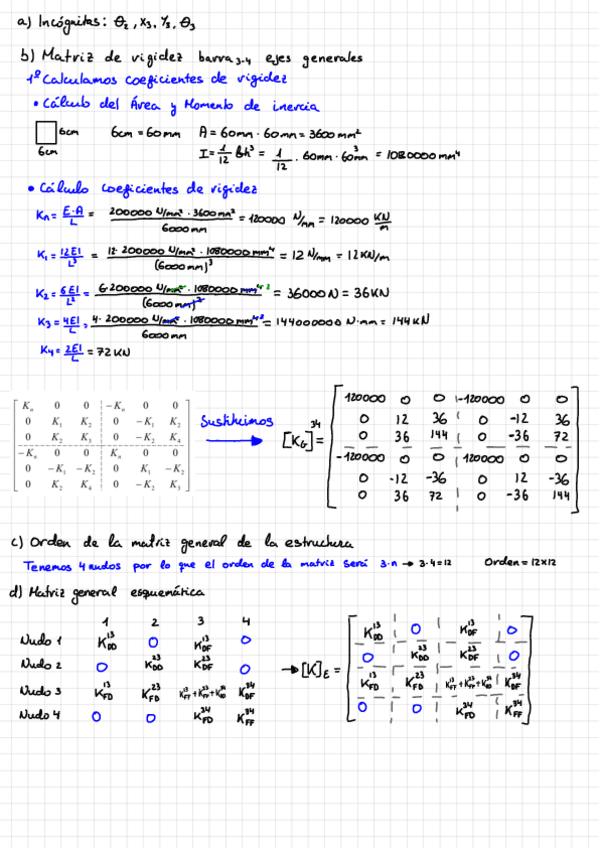 a) Incógnitas: θ₂, x₃, y₃, θ₃
b) Matriz de rigidez barra₃₋₄ ejes generales
1º Calculamos coeficientes de rigidez
• Cálculo del Área y Momento de inercia
6cm 6cm = 60mm A = 60mm · 60mm = 3600 mm²
6cm I = 1/12 bh³ = 1/12 · 60mm · 60mm³ = 1080000 mm⁴
• Cálculo coeficientes de rigidez
Kn = E·A/L = 200000 N/mm² · 3600 mm² / 6000mm = 120000 N/mm = 120000 KN/m
K₁ = 12EI/L³ = 12 · 200000 N/mm² · 1080000 mm⁴ / (6000mm)³ = 12 N/mm = 12 KN/m
K₂ = 6EI/L² = 6·200000 N/mm² · 1080000 mm⁴ ² / (6000mm)² = 36000 N = 36 KN
K₃ = 4EI/L = 4·200000 N/mm² · 1080000 mm⁴ ² / 6000mm = 144000000 N·mm = 144 KN
K₄ = 2EI/L = 72 KN
Kn 0 0 -Kn 0 0
0 K₁ K₂ 0 -K₁ K₂
0 K₂ K₃ 0 -K₂ K₄
-Kn 0 0 Kn 0 0
0 -K₁ -K₂ 0 K₁ -K₂
0 K₂ K₄ 0 -K₂ K₃
Sustituimos
[K_G]³⁴ =
120000 0 0 -120000 0 0
0 12 36 0 -12 36
0 36 144 0 -36 72
-120000 0 0 120000 0 0
0 -12 -36 0 12 -36
0 36 72 0 -36 144
c) Orden de la matriz general de la estructura
Tenemos 4 nudos por lo que el orden de la matriz será 3·n → 3·4=12 Orden = 12x12
d) Matriz general esquemática
1 2 3 4
Nudo 1 K_DD¹³ 0 K_DF¹³ 0
Nudo 2 0 K_DD²³ K_DF²³ 0
Nudo 3 K_FD¹³ K_FD²³ K_FF¹³+K_FF²³+K_DD³⁴ K_DF³⁴
Nudo 4 0 0 K_FD³⁴ K_FF³⁴
→ [K]_E =
K_DD¹³ 0 K_DF¹³ 0
0 K_DD²³ K_DF²³ 0
K_FD¹³ K_FD²³ K_FF¹³+K_FF²³+K_DD³⁴ K_DF³⁴
0 0 K_FD³⁴ K_FF³⁴